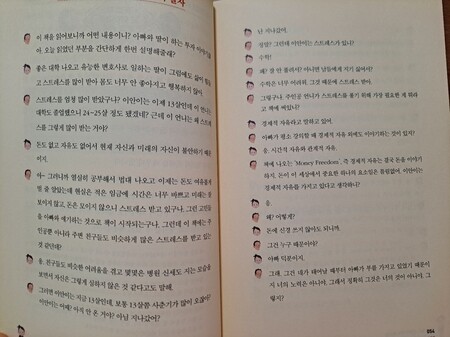 이 책을 읽어보니까 어떤 내용이니? 아빠와 딸이 하는 투자 이야기
야. 오늘 읽었던 부분을 간단하게 한번 설명해줄래?
좋은 대학 나오고 유능한 변호사로 일하는 딸이 그럼에도 삶이 힘들
고 스트레스를 많이 받아 몸도 너무 안 좋아지고 행복하지 않아.
스트레스를 엄청 많이 받았구나? 이안이는 이제 13살인데 이 언니는
대학도 졸업했으니 24~25살 정도 됐겠네? 근데 이 언니는 왜 스트레
스를 그렇게 많이 받는 거야?
돈도 없고 자유도 없어서 현재 자신과 미래의 자신이 불안하기 때문
이지.
아~ 그러니까 열심히 공부해서 법대 나오고 이제는 돈도 여유롭게
벌 줄 알았는데 현실은 적은 임금에 시간은 너무 바쁘고 미래는
보이지 않고, 돈은 모이지 않으니 스트레스 받고 있구나. 그런 고민들
을 아빠와 얘기하는 것으로 책이 시작되는구나. 그런데 이 책에는 주
인공뿐 아니라 주변 친구들도 비슷하게 많은 스트레스를 받고 있는
것 같던데?
응, 친구들도 비슷한 어려움을 겪고 몇몇은 병원 신세도 지는 모습을
보면서 자신은 그렇게 살하지 않은 것 같다고도 말해.
그러면 이안이는 지금 13살인데, 보통 13살쯤 사춘기가 많이 오잖아?
이안이는 어때? 아직 안 온 거야? 아님 지나갔어?
난 지나갔어.
정말? 그런데 이안이는 스트레스가 있니?
수학!
왜? 잘 안 풀려서? 아니면 남들에게 지기 싫어서?
수학은 너무 어려워. 그것 때문에 스트레스 받아.
그렇구나. 주인공 언니가 스트레스를 풀기 위해 가장 필요한 게 뭐라
고 책에 써있니?
경제적 자유.
아빠가 평소 강의할 때 경제적 자유 외에도 이야기하는 것이 있지?
응. 시간적 자유와 관계적 자유.
책에 나오는 'Money Freedom', 즉 경제적 자유는 결국 돈을 이야기
하지. 돈이 이 세상에서 중요한 하나의 요소임은 틀림없어. 이안이는
경제적 자유를 가지고 있다고 생각하니?
응.
왜? 어떻게?
돈에 신경 쓰지 않아도 되니까.
그건 누구 때문이야?
아빠 덕분이지.
그래, 그건 네가 태어날 때부터 아빠가 부를 가지고 있었기 때문이
지 너의 노력은 아니야. 그래서 정확히 그것은 너의 것이 아니야. 그
렇지?